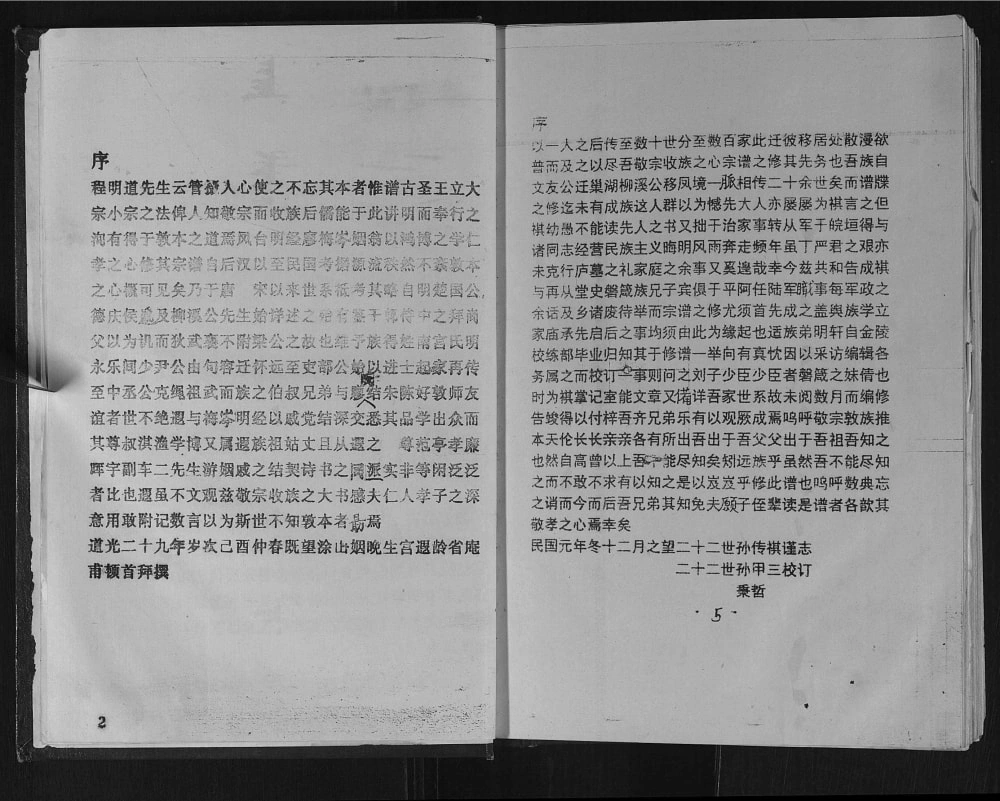 序
程明道先生云管摄人心使之不忘其本者惟谱古圣王立大
宗小宗之法俾人知敬宗而收族后儒能于此讲明而奉行之
洵有得于敦本之道焉凤台明经廖梅岑姻翁以鸿博之学仁
孝之心修其宗谱自后汉以至民国考据源流秩然不紊敦本
之心概可见矣乃于唐 宋以来世系祗考其略自明楚国公
德庆侯 及柳溪公先生始详述之 于 传中之拜尚
父以为机而狄武襄不附梁公之故也雍于族得姓南宫氏明
永乐间少尹公由句容迁怀远至吏部公始以进士起家再传
至中丞公克绳祖武而族之伯叔兄弟与廖结朱陈好敦师友
谊者世不绝遐与梅岑明经以戚党结深交悉其品学出众而
其尊叔淇渔学博又属遐族祖姑丈且从遐之 尊范亭孝廉
晖宇副车二先生游姻戚之结契诗书之同派实非等闲泛泛
者比也遐虽不文观兹敬宗收族之大书感夫仁人孝子之深
意用敢附记数言以为斯世不知敦本者勖焉
道光二十九年岁次己酉仲春既望涂山姻晚生宫遐龄省庵
甫顿首拜撰
2
序
以一人之后传至数十世分至数百家此迁彼移居处散漫欲
普而及之以尽吾敬宗收族之心宗谱之修其先务也吾族自
文友公迁巢湖柳溪公移凤境一脉相传二十余世矣而谱牒
之修迄未有成族这人群以为憾先大人亦屡屡为祺言之但
祺幼愚不能读先人之书又拙于治家事转从军于皖垣得与
诸同志经营民族主义晦明风雨奔走频年虽丁严君之艰亦
未克行庐墓之礼家庭之余事又奚遑哉幸今兹共和告成祺
与再从堂史磐箴族兄子宾俱于平阿任陆军 事每军政之
余话及乡诸废待举而宗谱之修尤须首先成之盖舆族学立
家庙承先启后之事均须由此为缘起也适族弟明轩自金陵
校练部毕业归知其于修谱一举向有真忱因以采访编辑各
务属之而校订一事则问之刘子少臣少臣者磐箴之妹倩也
时为祺掌记室能文章又 详吾家世系故未阅数月而编修
告竣得以付梓吾齐兄弟乐有以观厥成焉呜呼敬宗敦族推
本天伦长长亲亲各有所出吾出于吾父父出于吾祖吾知之
也然自高曾以上吾 能尽知矣矧远族乎虽然吾不能尽知
之而不敢不求有以知之是以岌岌乎修此谱也呜呼数典忘
之诮而今而后吾兄弟其知免夫愿子侄辈读是谱者各歆其
敬孝之心焉幸矣
民国元年冬十二月之望二十二世孙传祺谨志
二十二世孙甲三校订
秉哲
·5·